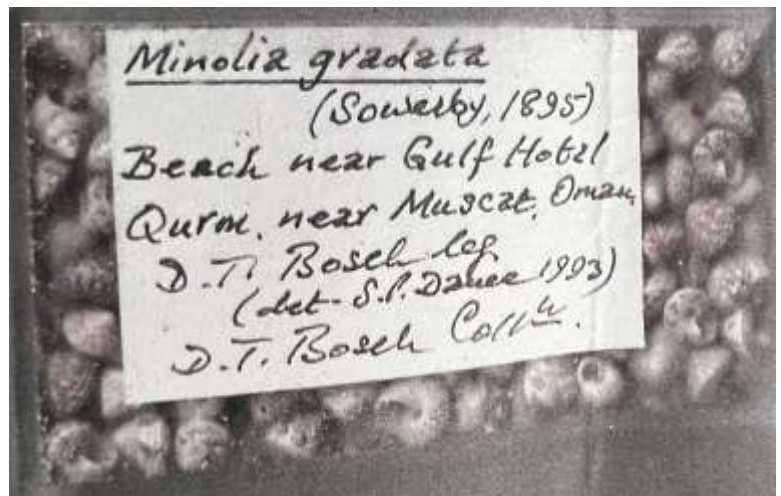 Minolia gradata
(Sowerby, 1895)
Beach near Gulf Hotel
Qurm, near Muscat, Oman,
D.T. Bosch leg
(det. S.P. Dance 1993)
D.T. Bosch Colln.